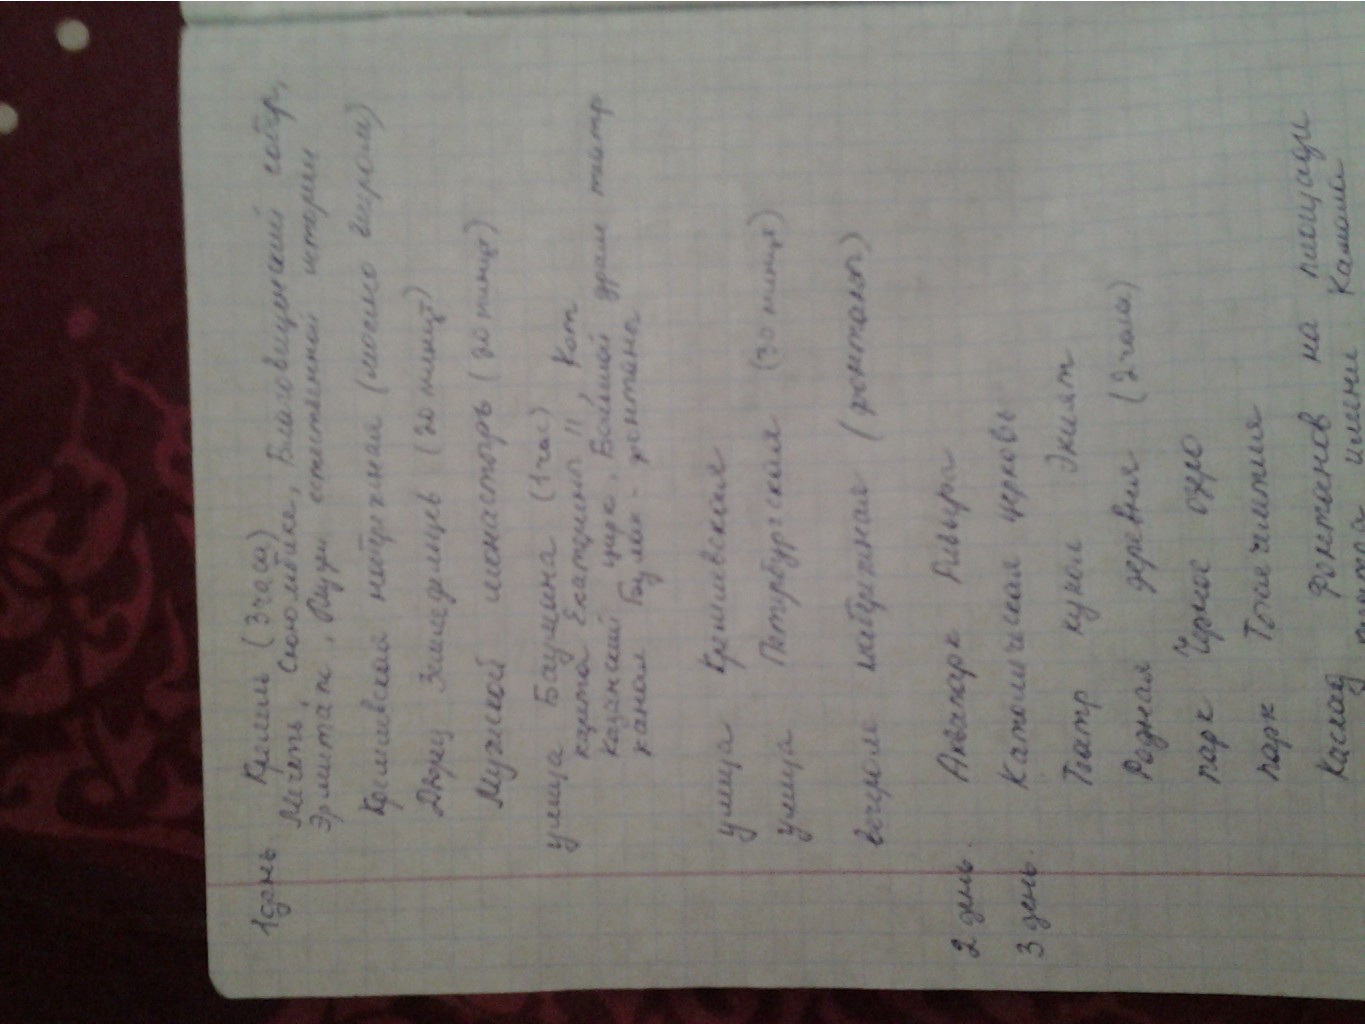 1 день. Кремль (3 часа)
Мечеть, Сююмбике, Благовещенский собор,
Эрмитаж, Музей естественной истории
Кремлевская набережная (можно вечером)
Дворец Земледельцев (20 минут)
Мужской монастырь (20 минут)
улица Баумана (1 час)
карета Екатерины II, Кот
Казанский, цирк, Большой драм театр
канал Булак - фонтаны
улица Кремлевская
улица Петербургская (30 минут)
вечером набережная (фонтаны)
2 день. Аквапарк Ривьера
3 день. Католическая церковь
Театр кукол Экият
Родная деревня (2 часа)
парк Черное озеро
парк Тысячелетия
Каскад фонтанов на площади
театра имени Камала